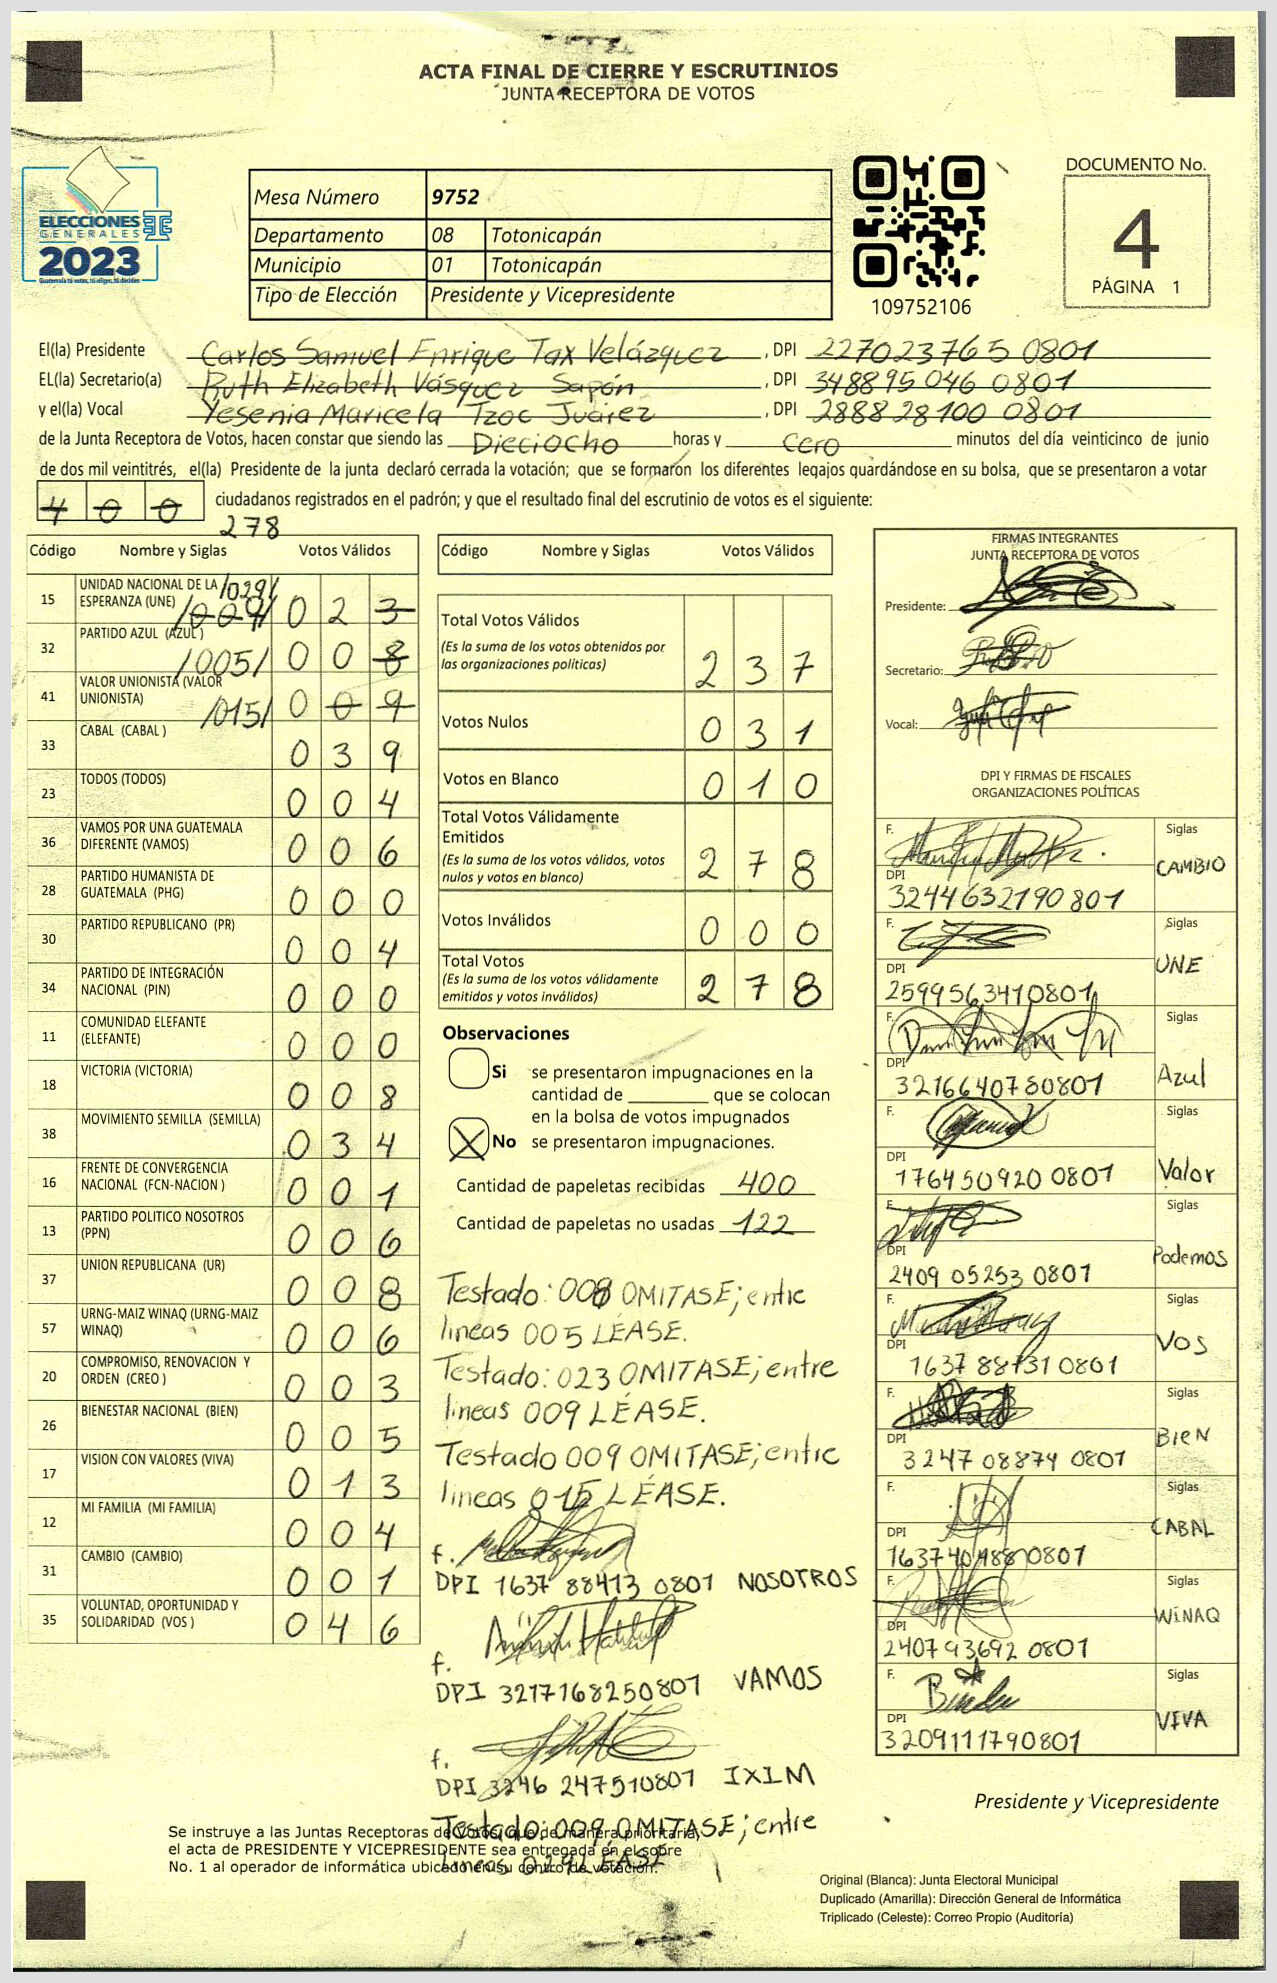 ACTA FINAL DE CIERRE Y ESCRUTINIOS
JUNTA RECEPTORA DE VOTOS
ELECCIONES
GENERALES
2023
Guatemala tú votas, tú eliges, tú decides
Mesa Número 9752
Departamento 08 Totonicapán
Municipio 01 Totonicapán
Tipo de Elección Presidente y Vicepresidente
109752106
DOCUMENTO No.
4
PÁGINA 1
El(la) Presidente Carlos Samuel Enrique Tax Velázquez , DPI 227023765 0801
EL(la) Secretario(a) Ruth Elizabeth Vásquez Sapón , DPI 348895046 0801
y el(la) Vocal Yesenia Maricela Tzoc Juárez , DPI 288828100 0801
de la Junta Receptora de Votos, hacen constar que siendo las Dieciocho horas y Cero minutos del día veinticinco de junio
de dos mil veintitrés, el(la) Presidente de la junta declaró cerrada la votación; que se formaron los diferentes legajos guardándose en su bolsa, que se presentaron a votar
400 ciudadanos registrados en el padrón; y que el resultado final del escrutinio de votos es el siguiente:
278
Código Nombre y Siglas Votos Válidos
15 UNIDAD NACIONAL DE LA ESPERANZA (UNE) /009/ /029/ 023
32 PARTIDO AZUL (AZUL) /005/ 008
41 VALOR UNIONISTA (VALOR UNIONISTA) /015/ 009
33 CABAL (CABAL) 039
23 TODOS (TODOS) 004
36 VAMOS POR UNA GUATEMALA DIFERENTE (VAMOS) 006
28 PARTIDO HUMANISTA DE GUATEMALA (PHG) 000
30 PARTIDO REPUBLICANO (PR) 004
34 PARTIDO DE INTEGRACIÓN NACIONAL (PIN) 000
11 COMUNIDAD ELEFANTE (ELEFANTE) 000
18 VICTORIA (VICTORIA) 008
38 MOVIMIENTO SEMILLA (SEMILLA) 034
16 FRENTE DE CONVERGENCIA NACIONAL (FCN-NACION) 001
13 PARTIDO POLITICO NOSOTROS (PPN) 006
37 UNION REPUBLICANA (UR) 008
57 URNG-MAIZ WINAQ (URNG-MAIZ WINAQ) 006
20 COMPROMISO, RENOVACION Y ORDEN (CREO) 003
26 BIENESTAR NACIONAL (BIEN) 005
17 VISION CON VALORES (VIVA) 013
12 MI FAMILIA (MI FAMILIA) 004
31 CAMBIO (CAMBIO) 001
35 VOLUNTAD, OPORTUNIDAD Y SOLIDARIDAD (VOS) 046
Código Nombre y Siglas Votos Válidos
Total Votos Válidos 237
(Es la suma de los votos obtenidos por
las organizaciones políticas)
Votos Nulos 031
Votos en Blanco 010
Total Votos Válidamente
Emitidos 278
(Es la suma de los votos válidos, votos
nulos y votos en blanco)
Votos Inválidos 000
Total Votos 278
(Es la suma de los votos válidamente
emitidos y votos inválidos)
Observaciones
Si se presentaron impugnaciones en la
cantidad de ________ que se colocan
en la bolsa de votos impugnados
X No se presentaron impugnaciones.
Cantidad de papeletas recibidas 400
Cantidad de papeletas no usadas 122
Testado: 008 OMITASE; entre
lineas 005 LÉASE.
Testado: 023 OMITASE; entre
lineas 009 LÉASE.
Testado 009 OMITASE; entre
lineas 015 LÉASE.
f.
DPI 1637 88413 0801 NOSOTROS
f.
DPI 3217168250801 VAMOS
f.
DPI 3246 247510801 IXIM
Testado: 009 OMITASE; entre
lineas 029 LÉASE
FIRMAS INTEGRANTES
JUNTA RECEPTORA DE VOTOS
Presidente:
Secretario:
Vocal:
DPI Y FIRMAS DE FISCALES
ORGANIZACIONES POLÍTICAS
F. Siglas
CAMBIO
DPI
3244632190801
F. Siglas
UNE
DPI
2599563410801
F. Siglas
Azul
DPI
3216640780801
F. Siglas
Valor
DPI
176450920 0801
F. Siglas
Podemos
DPI
2409 05253 0801
F. Siglas
VOS
DPI
1637 88131 0801
F. Siglas
BIEN
DPI
3247 08874 0801
F. Siglas
CABAL
DPI
F. Siglas
WINAQ
DPI
240793692 0801
F. Siglas
VIVA
DPI
3209111790801
Presidente y Vicepresidente
Se instruye a las Juntas Receptoras de Votos, que de manera prioritaria,
el acta de PRESIDENTE Y VICEPRESIDENTE sea entregada en el sobre
No. 1 al operador de informática ubicado en su centro de votación.
Original (Blanca): Junta Electoral Municipal
Duplicado (Amarilla): Dirección General de Informática
Triplicado (Celeste): Correo Propio (Auditoría)